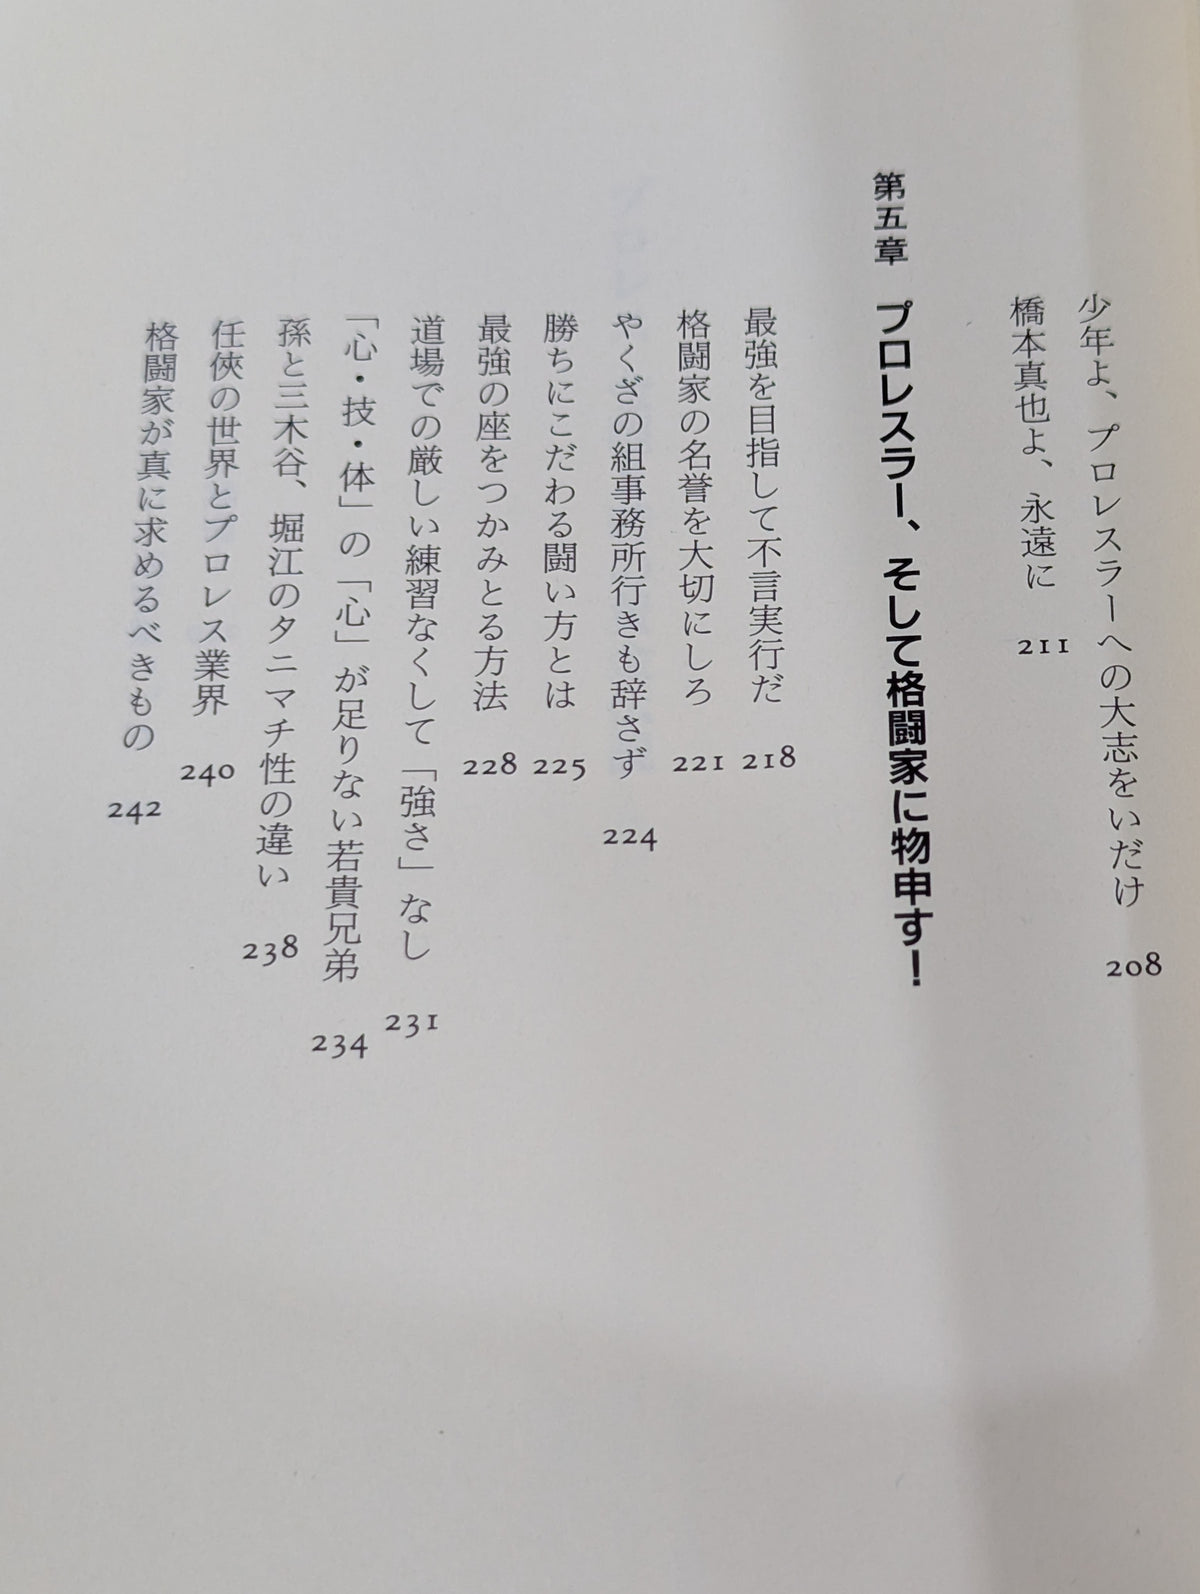 少年よ、プロレスラーへの大志をいだけ 208
橋本真也よ、永遠に 211
第五章 プロレスラー、そして格闘家に物申す！
最強を目指して不言実行だ 218
格闘家の名誉を大切にしろ 221
やくざの組事務所行きも辞さず 224
勝ちにこだわる闘い方とは 225
最強の座をつかみとる方法 228
道場での厳しい練習なくして「強さ」なし 231
「心・技・体」の「心」が足りない若貴兄弟 234
孫と三木谷、堀江のタニマチ性の違い 238
任俠の世界とプロレス業界 240
格闘家が真に求めるべきもの 242